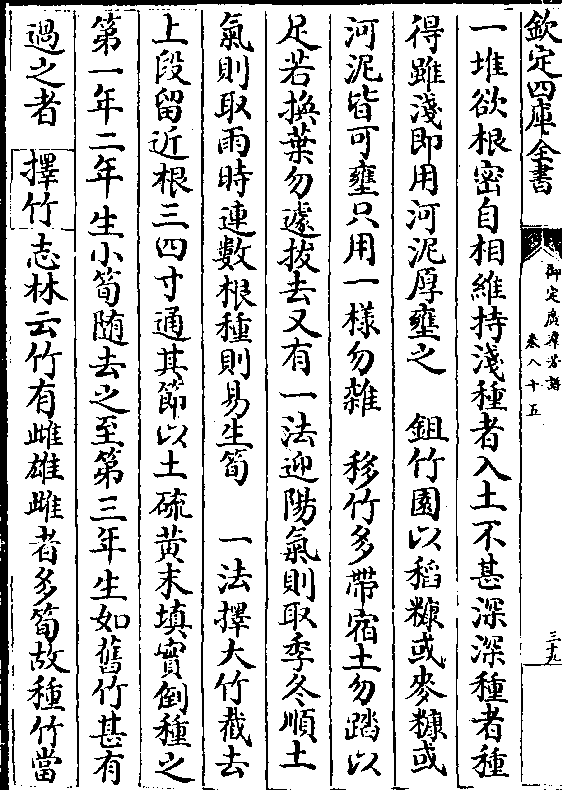 欽定四庫全書
御定廣羣芳譜
卷八十五
三十九
一堆欲根密自相維持淺種者入土不甚深深種者種
得雖淺即用河泥厚壅之　鉏竹園以稻糠或麥糠或
河泥皆可壅只用一様勿雜　移竹多帶宿土勿踏以
足若換葉勿遽拔去又有一法迎陽氣則取季冬順土
氣則取雨時連數根種則易生筍　一法擇大竹截去
上段留近根三四寸通其節以土硫黄末填實倒種之
第一年二年生小筍随去之至第三年生如舊竹甚有
過之者　擇竹志林云竹有雌雄雌者多筍故種竹當